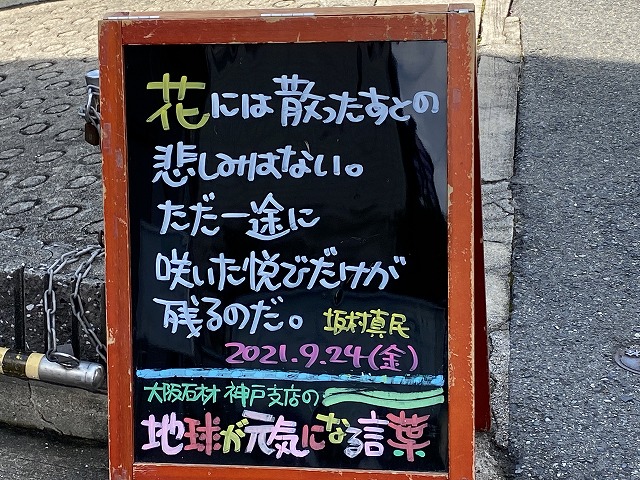 花には散ったあとの
悲しみはない。
ただ一途に
咲いた悦びだけが
残るのだ。 坂村真民
2021.9.24(金)
大阪石材 神戸支店の
地球が元気になる言葉